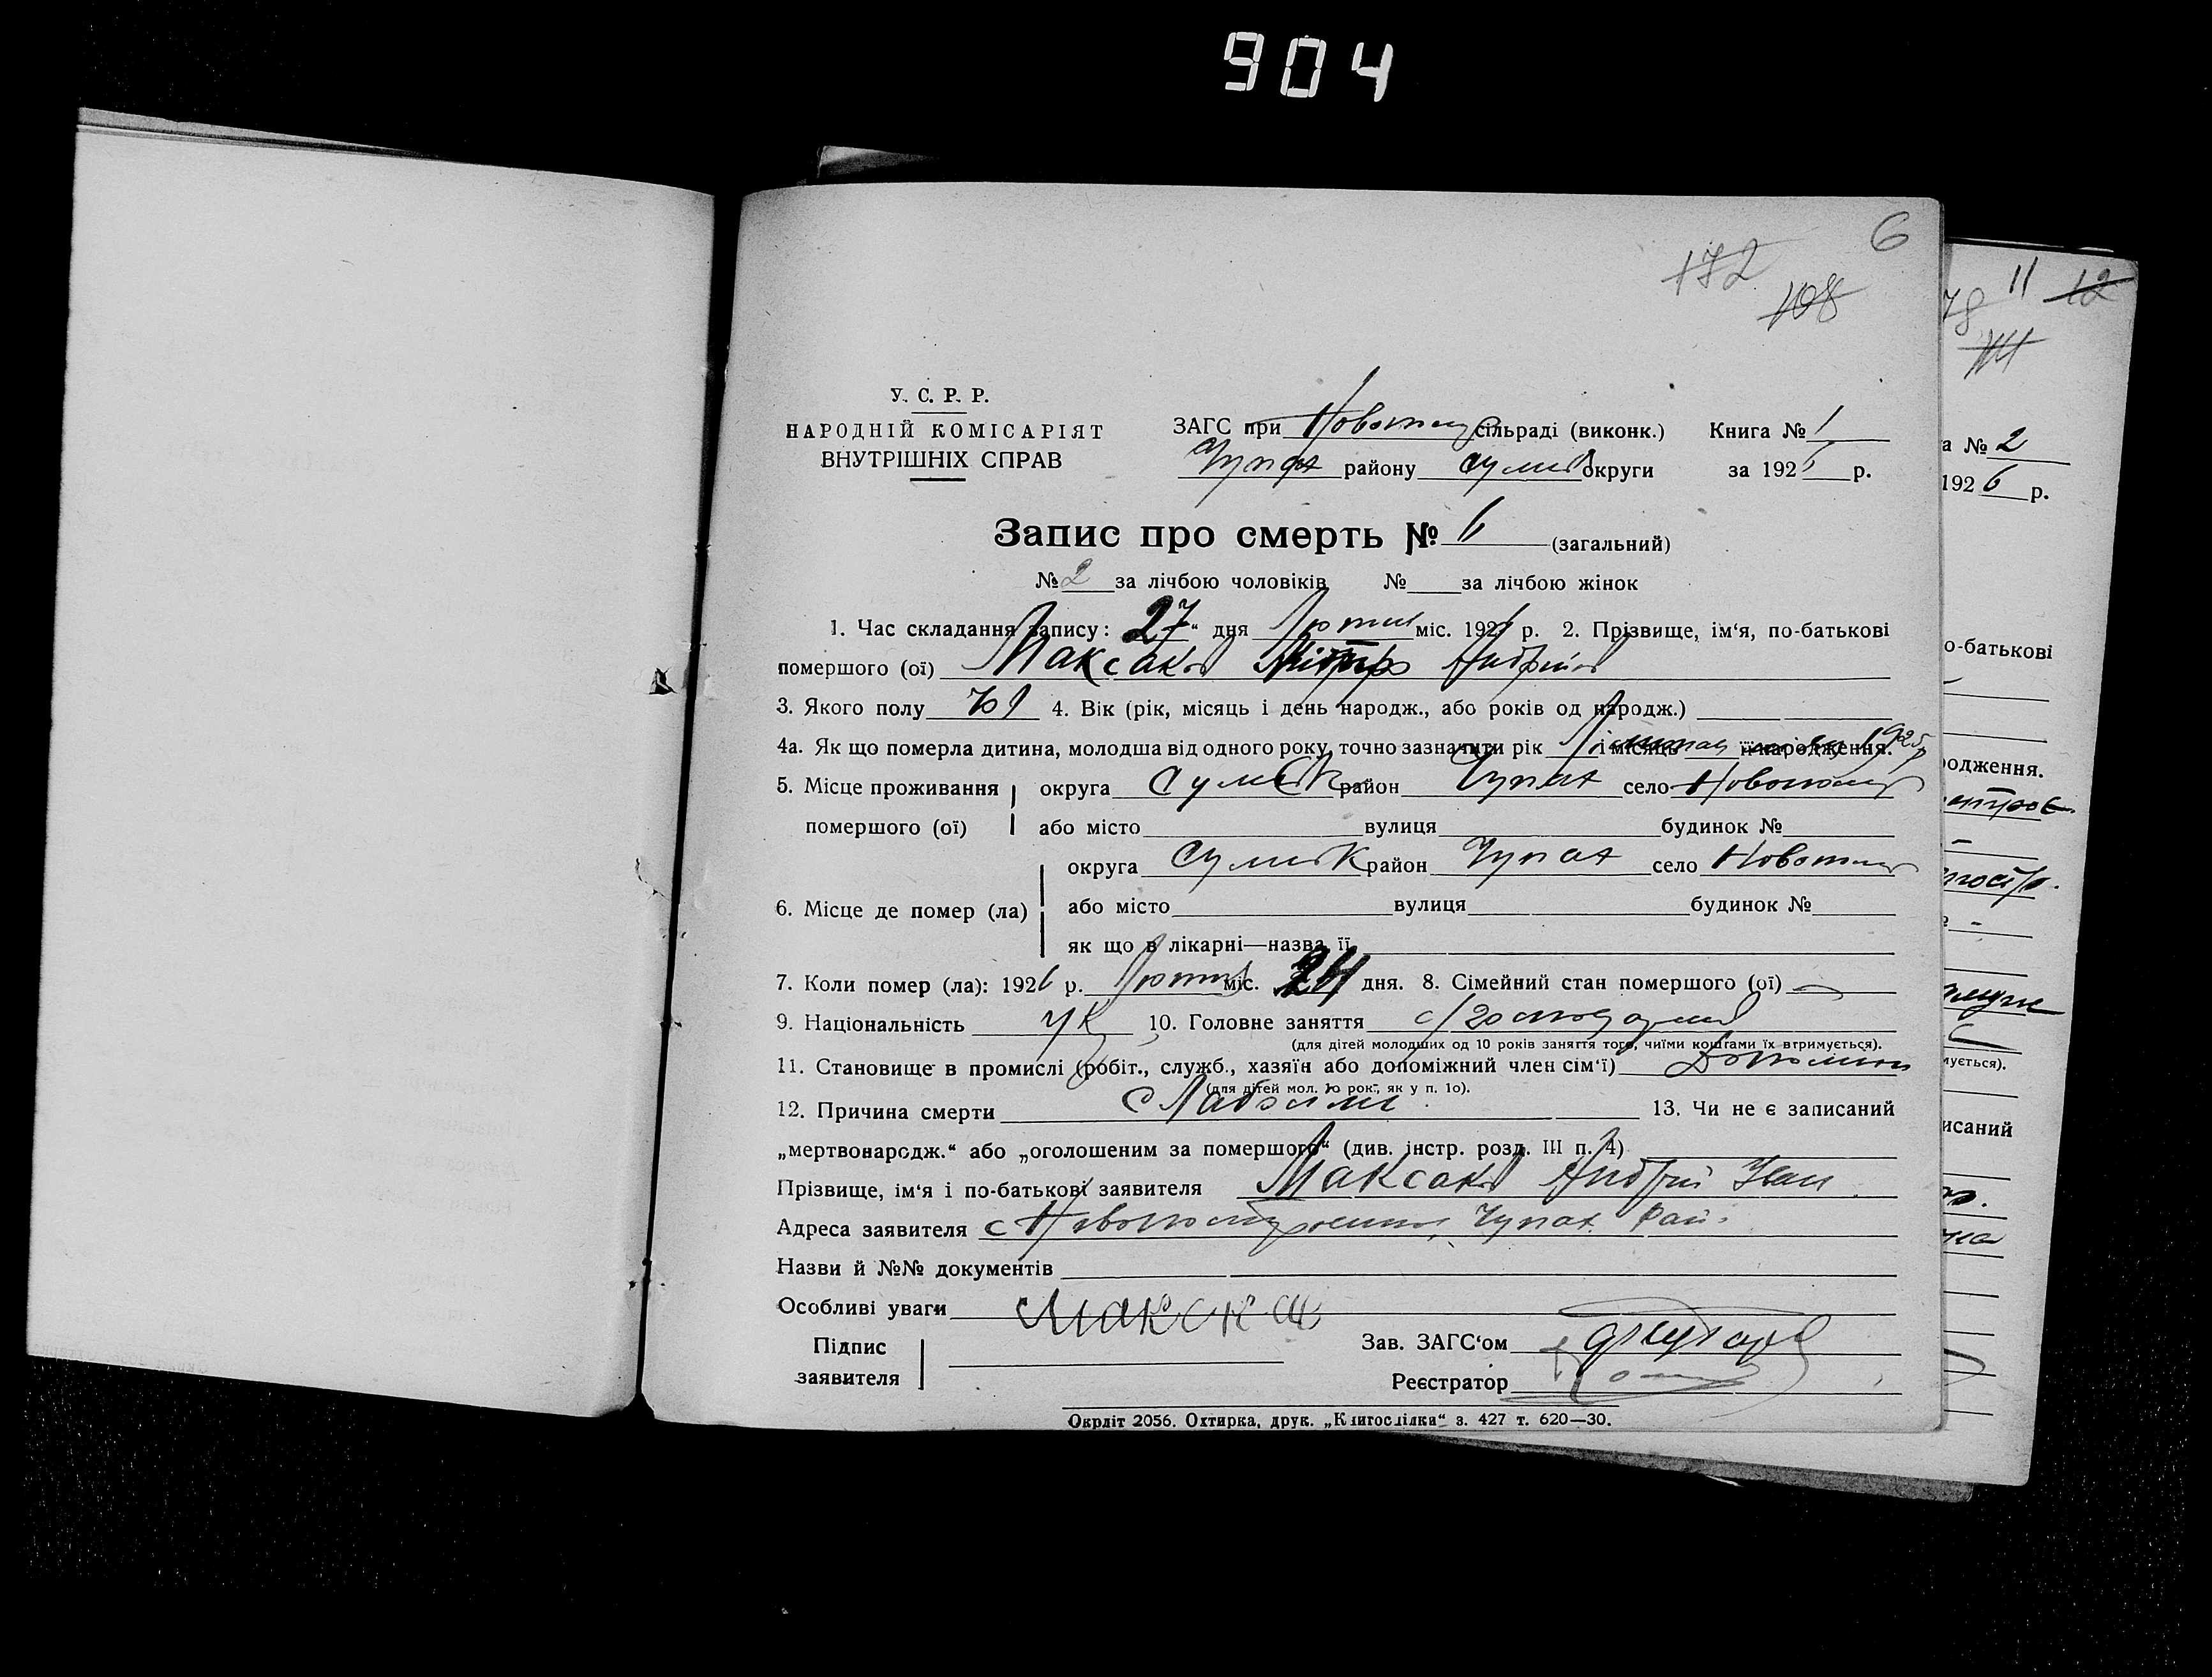 904
6
172
108
У. С. Р. Р.
НАРОДНІЙ КОМІСАРІЯТ
ВНУТРІШНІХ СПРАВ
ЗАГС при сільраді (виконк.) Книга № 1
Чупах району Сумськ округи за 1926 р.
Запис про смерть № 6 (загальний)
№ 2 за лічбою чоловіків № за лічбою жінок
1. Час складання запису: 27 " дня Лютня міс. 1926 р. 2. Прізвище, ім'я, по-батькові
помершого (ої) Максаков Митро Андрійов
3. Якого полу Чол 4. Вік (рік, місяць і день народж., або років од народж.)
4а. Як що померла дитина, молодша від одного року, точно зазначити рік і місяць її народження. 1925 р
5. Місце проживання округа Сумськ район Чупах село
помершого (ої) або місто вулиця будинок №
округа Сумськ район Чупах село
6. Місце де помер (ла) або місто вулиця будинок №
як що в лікарні—назва її
7. Коли помер (ла): 1926 р. Лютня міс. 24 дня. 8. Сімейний стан помершого (ої) —
9. Національність Ук 10. Головне заняття
(для дітей молодших од 10 років заняття того, чиїми коштами їх втримується).
11. Становище в промислі (робіт., служб., хазяїн або допоміжний член сім'ї)
(для дітей мол. 10 рок., як у п. 10).
12. Причина смерти 13. Чи не є записаний
„мертвонародж.“ або „оголошеним за помершого“ (див. інстр. розд. III п. 4)
Прізвище, ім'я і по-батькові заявителя Максаков Андрій Іван
Адреса заявителя с Чупах. Рай.
Назви й №№ документів
Особливі уваги
Підпис
заявителя
Зав. ЗАГС'ом
Реєстратор
Окрліт 2056. Охтирка, друк. „Книгоспілки“ з. 427 т. 620—30.
11 12
78
111
а № 2
192 6 р.
о-батькові
одження.
мується).
исаний